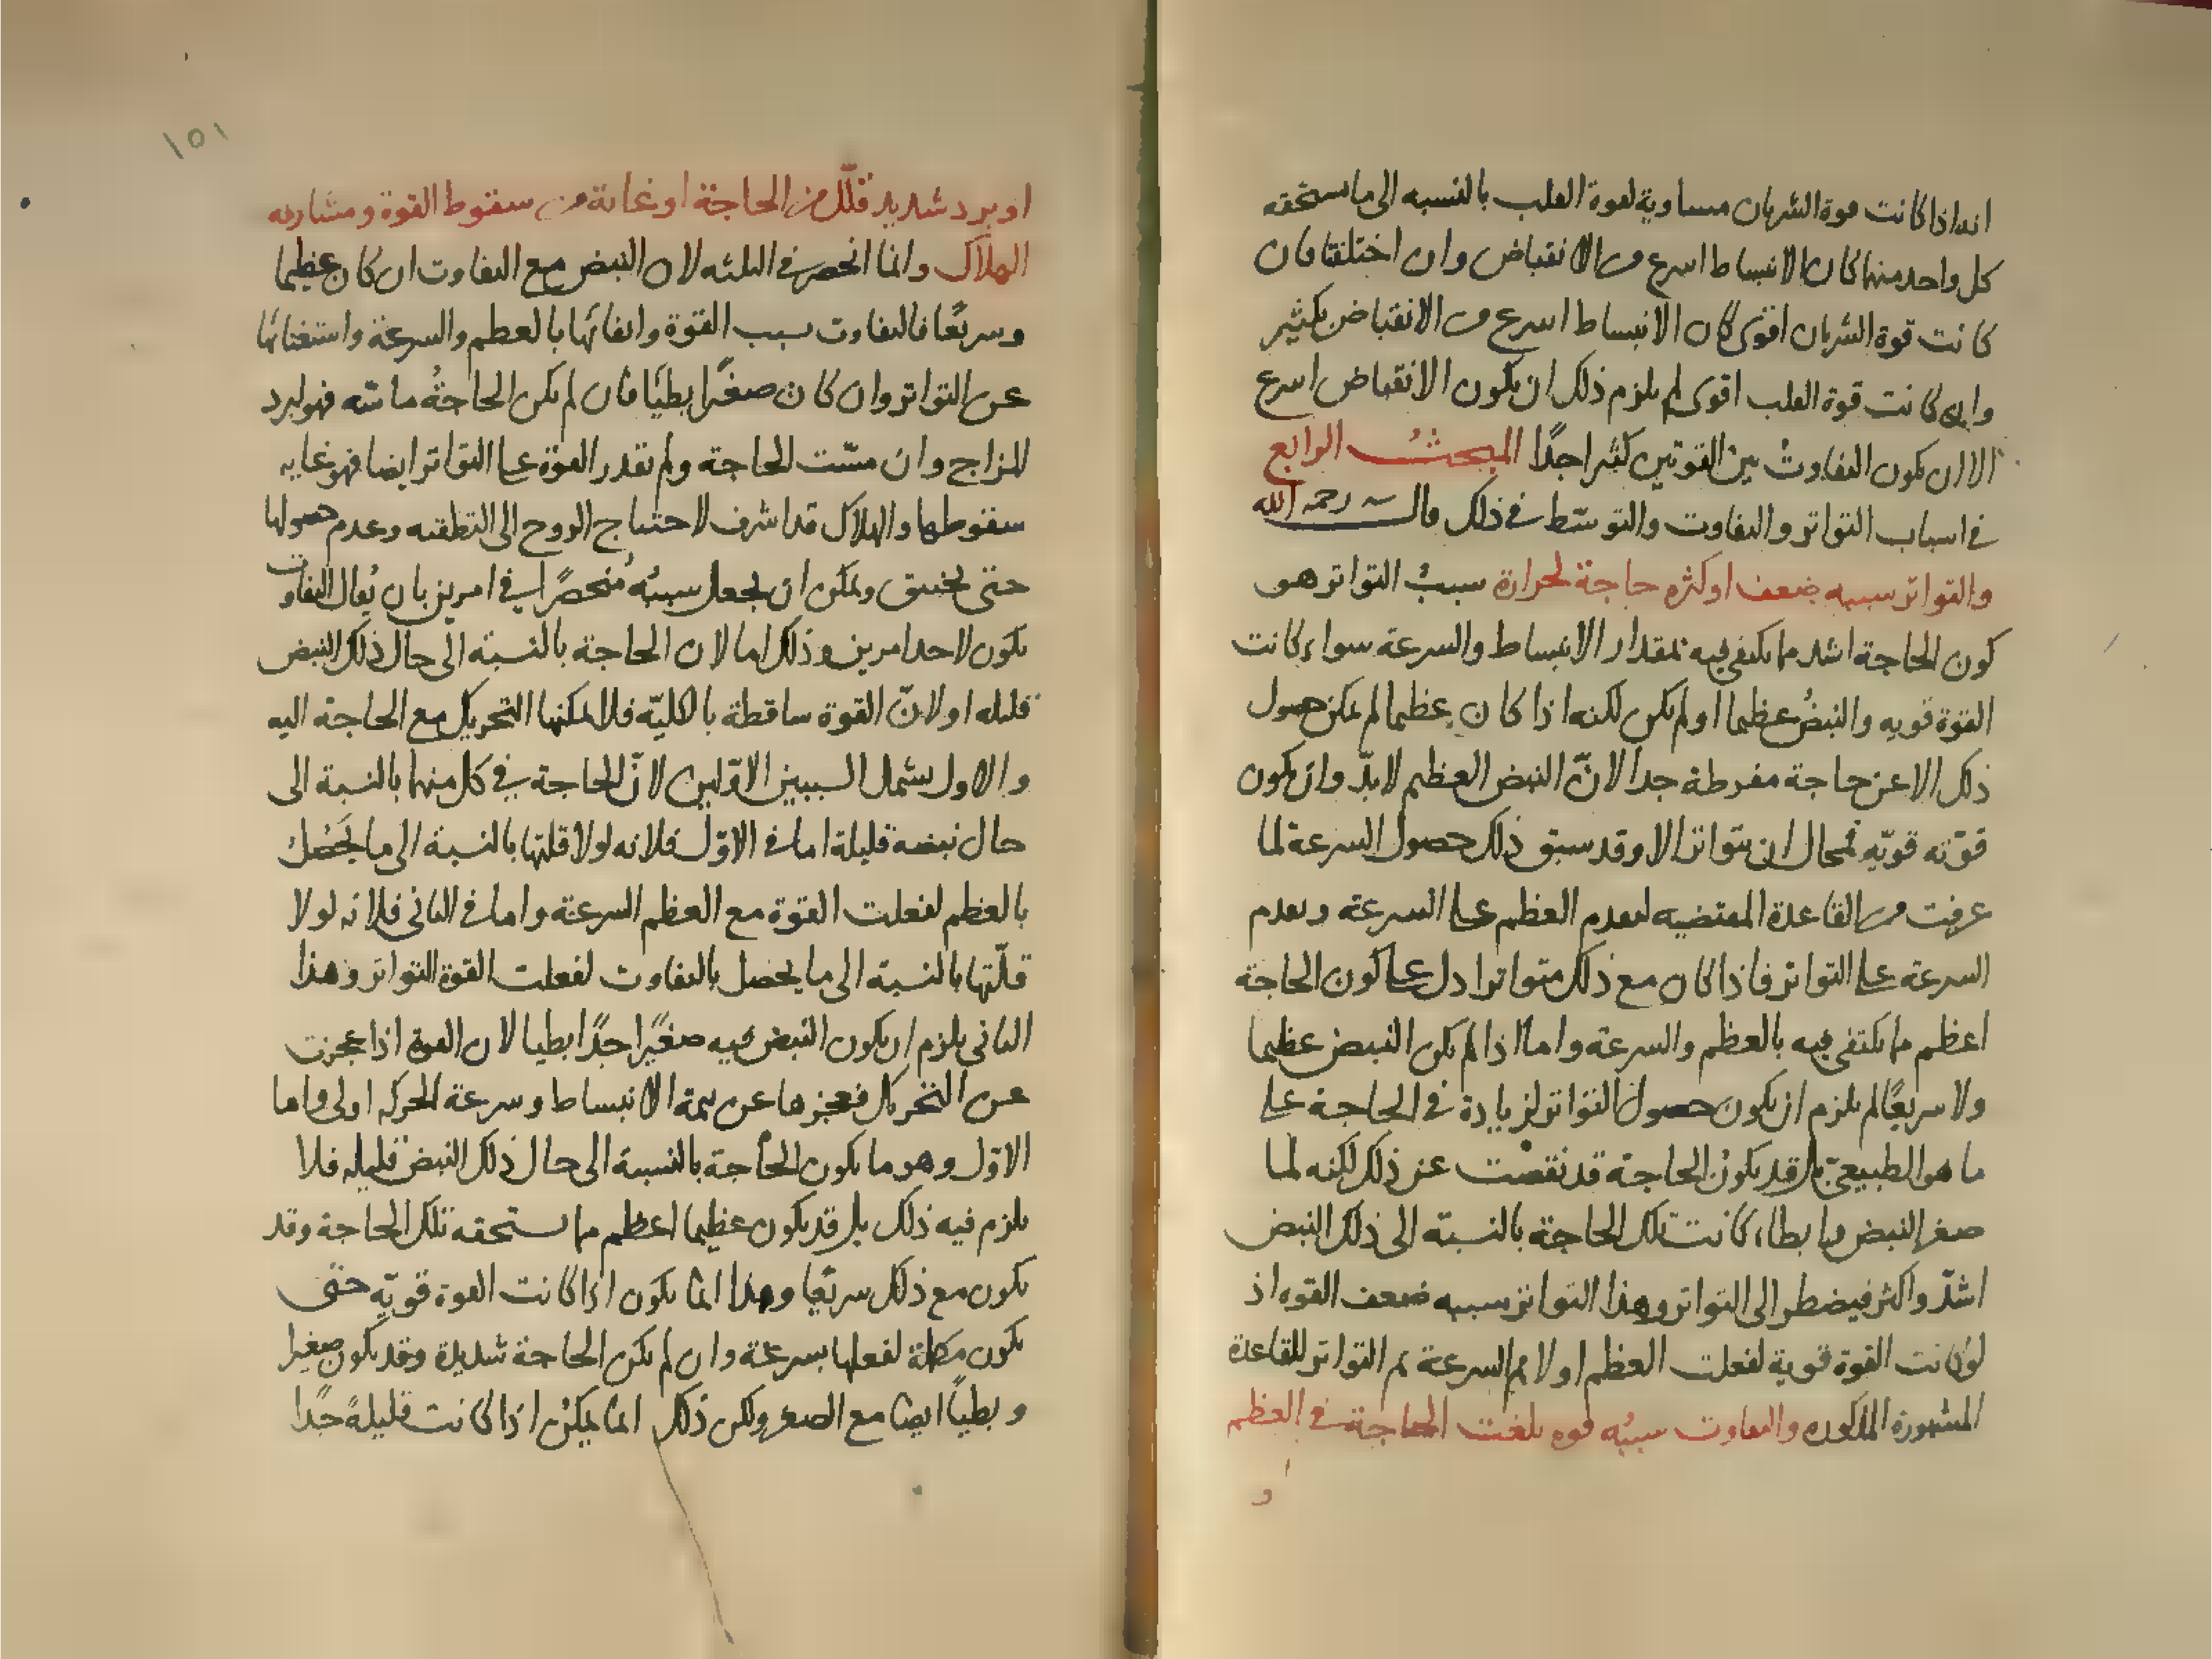 انه اذا كانت قوة الشريان مساوية لقوة القلب بالنسبه الى ما يستحقه
كل واحد منهما كان الانبساط اسرع من الانقباض وان اختلفتا فان
كانت قوة الشريان اقوى كان الانبساط اسرع من الانقباض بكثير
وان كانت قوة القلب اقوى لم يلزم ذلك ان يكون الانقباض اسرع
الا ان يكون التفاوت بين القوتين كثيرا جدًا المبحث الرابع
في اسباب التواتر والتفاوت والتوسّط في ذلك قال رحمه الله
والتواتر سببه ضعف او كثره حاجة لحرارة سببُ التواتر هو
كون الحاجة اشد مما يكتفى فيه بمقدار الانبساط والسرعة سواء كانت
القوة قويه والنبضُ عظيما او لم يكن لكنه اذا كان عظيما لم يمكن حصول
ذلك الا عن حاجة مفرطة جدا لانّ النبض العظيم لا بدّ وان يكون
قوّته قويّه فمحال ان يتواتر الا وقد سبق ذلك حصول السرعة لما
عرفت من القاعدة المقتضيه لتقدم العظم على السرعة وتقدم
السرعة على التواتر فاذا كان مع ذلك متواترا دل على كون الحاجة
اعظم مما يكتفى فيه بالعظم والسرعة واما اذا لم يكن النبض عظيما
ولا سريعًا لم يلزم ان يكون حصول التواتر لزيادة في الحاجة على
ما هو الطبيعيّ بل قد يكون الحاجة قد نقصت عن ذلك لكنه لما
صغر النبض وابطاء كانت تلك الحاجة بالنسبة الى ذلك النبض
اشدّ واكثر فيضطر الى التواتر وهذا التواتر سببه ضعف القوه اذ
لو كانت القوة قوية لفعلت العظم اولا ثم السرعة ثم التواتر للقاعدة
المشهورة المذكوره والتفاوت سببُه قوه بلغت الحاجة في العظم
او
١٥١
او برد شديد قلّل من الحاجة او غاية من سقوط القوة ومشارفه
الهلاك وانما انحصر في الثلثه لان النبض مع التفاوت ان كان عظيما
وسريعًا فالتفاوت سبب القوة وايفائها بالعظم والسرعة واستغنائها
عن التواتر وان كان صغيرًا بطيئا فان لم يكن الحاجةُ ماسّه فهو لبرد
المزاج وان مسّت الحاجة ولم تقدر القوة على التواتر ايضا فهو غايه
سقوطها والهلاك قد اشرف لاحتياج الروح الى التطفئه وعدم حصولها
حتى يختنق ويمكن ان يجعل سببُه مُنحصرًا في امرين بان يُقال التفاوت
يكون لاحد امرين وذلك اما لان الحاجة بالنسبة الى حال ذلك النبض
قليله او لانّ القوة ساقطة بالكليّه فلا يمكنها التحريك مع الحاجة اليه
والاول يشمل السببين الاوّلين لانّ الحاجة في كل منهما بالنسبة الى
حال نبضه قليلة اما في الاوّل فلانه لولا قلتها بالنسبة الى ما يَحْصُل
بالعظم لفعلت القوة مع العظم السرعة واما في الثاني فلانه لولا
قلّتها بالنسبة الى ما يحصل بالتفاوت لفعلت القوة التواتر وهذا
الثاني يلزم ان يكون النبض فيه صغيرًا جدًا بطيا لان القوة اذا عجزت
عن التحريك فعجزها عن تتمة الانبساط وسرعة الحركه اولى واما
الاوّل وهو ما يكون الحاجة بالنسبة الى حال ذلك النبض قليله فلا
يلزم فيه ذلك بل قد يكون عظيما اعظم مما تستحقه تلك الحاجة وقد
يكون مع ذلك سريعا وهذا انما يكون اذا كانت القوة قويّه حتى
يكون لفعلها بسرعة وان لم يكن الحاجة شديدة وقد يكون صغيرا
وبطياً ايضا مع الصغر ولكن ذلك انما يمكن اذا كانت قليلة جدًا